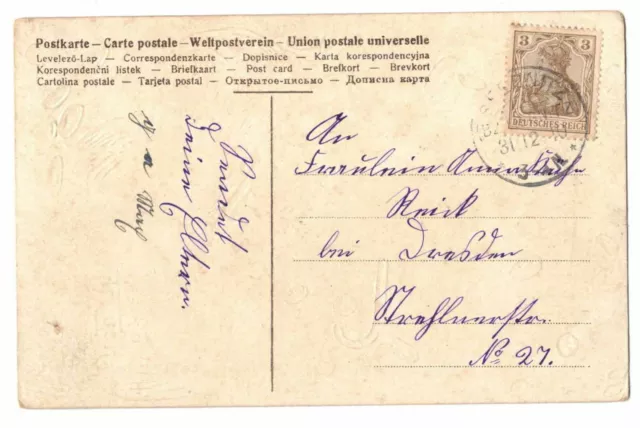 Postkarte — Carte postale — Weltpostverein — Union postale universelle
Levelező-Lap — Correspondenzkarte — Dopisnice — Karta korespondencyjna
Korespondenční lístek — Briefkaart — Post card — Brefkort — Brevkort
Cartolina postale — Tarjeta postal — Открытое-письмо — Дописна карта
3 3
DEUTSCHES REICH
31 12
Sendet
Deine Eltern.
An
Fräulein Anna
Reick
bei Dresden
Strehlnerstr.
No. 27.